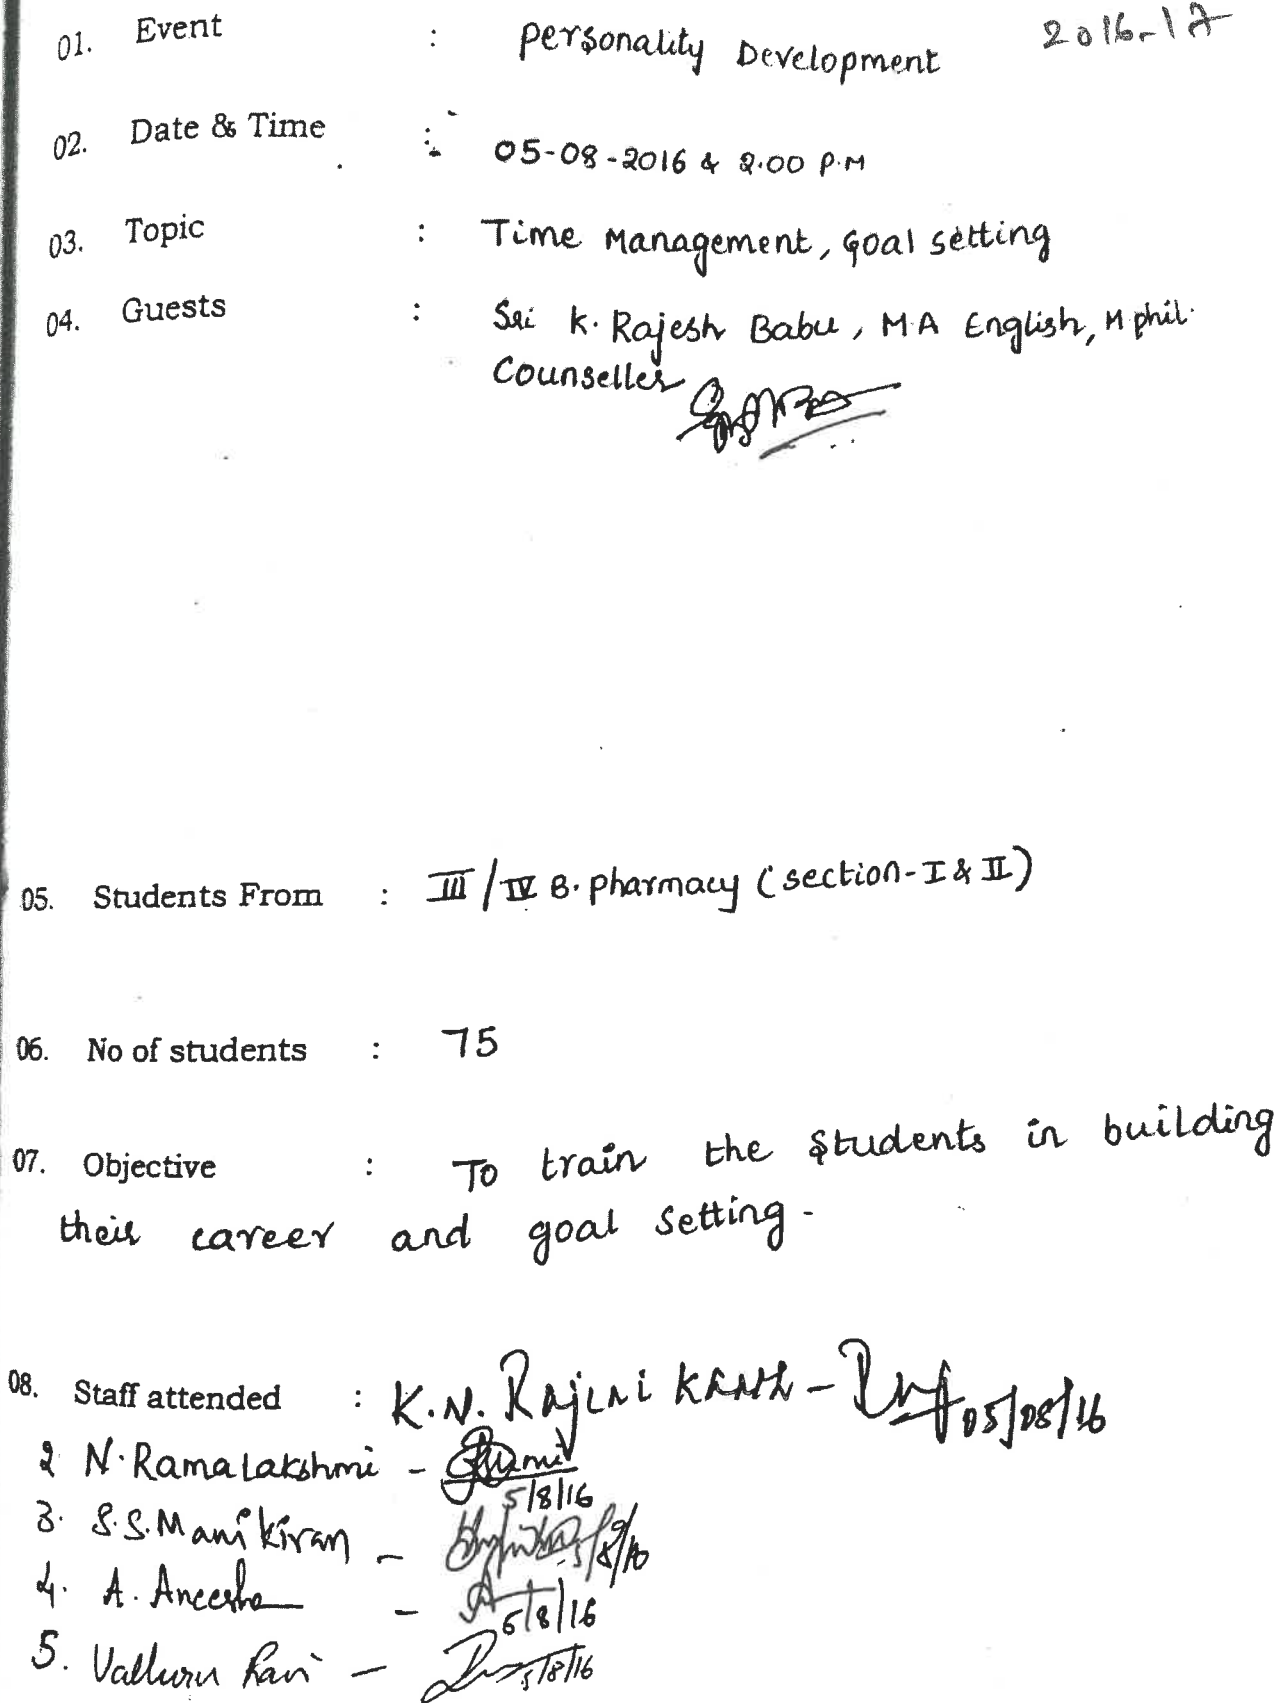 2016-17
01. Event : Personality Development
02. Date & Time : 05-08-2016 & 2.00 P.M
03. Topic : Time Management, Goal setting
04. Guests : Sri K. Rajesh Babu, M.A English, M phil.
Counseller
05. Students From : III/IV B. pharmacy (section-I & II)
06. No of students : 75
07. Objective : To train the students in building
their career and goal setting.
08. Staff attended : K.N. Rajni Kanth - 05/08/16
2 N. Ramalakshmi -
5/8/16
3. S.S. Mani kiran - 5/8/16
4. A. Aneesha -
5/8/16
5. Valluru Ravi - 5/8/16